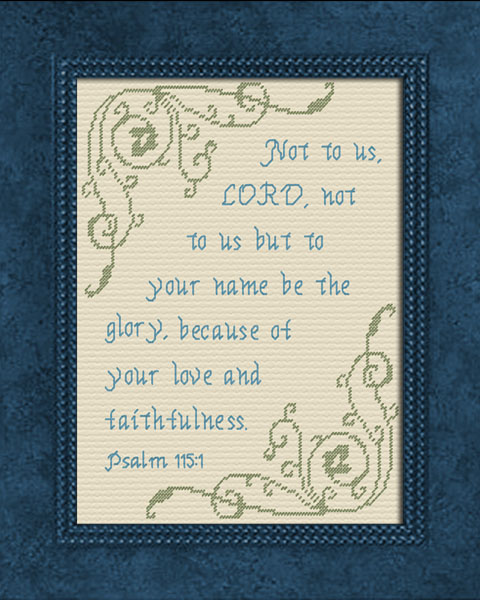 Not to us,
LORD, not
to us but to
your name be the
glory, because of
your love and
faithfulness.
Psalm 115:1